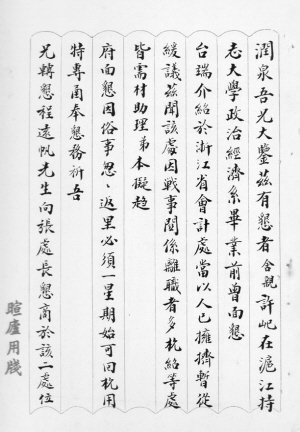 潤泉吾兄大鑒茲有懇者舍親許屺在滬江持
志大學政治經濟系畢業前曾面懇
台端介紹於浙江省會計處當以人已擁擠暫從
緩議茲聞該處因戰事關係離職者多杭紹等處
皆需材助理弟本擬趋
府面懇因俗事怱、返里必須一星期始可回杭用
特專函奉懇務祈吾
兄轉懇程遠帆先生向張處長懇商於該二處位
暄廬用牋